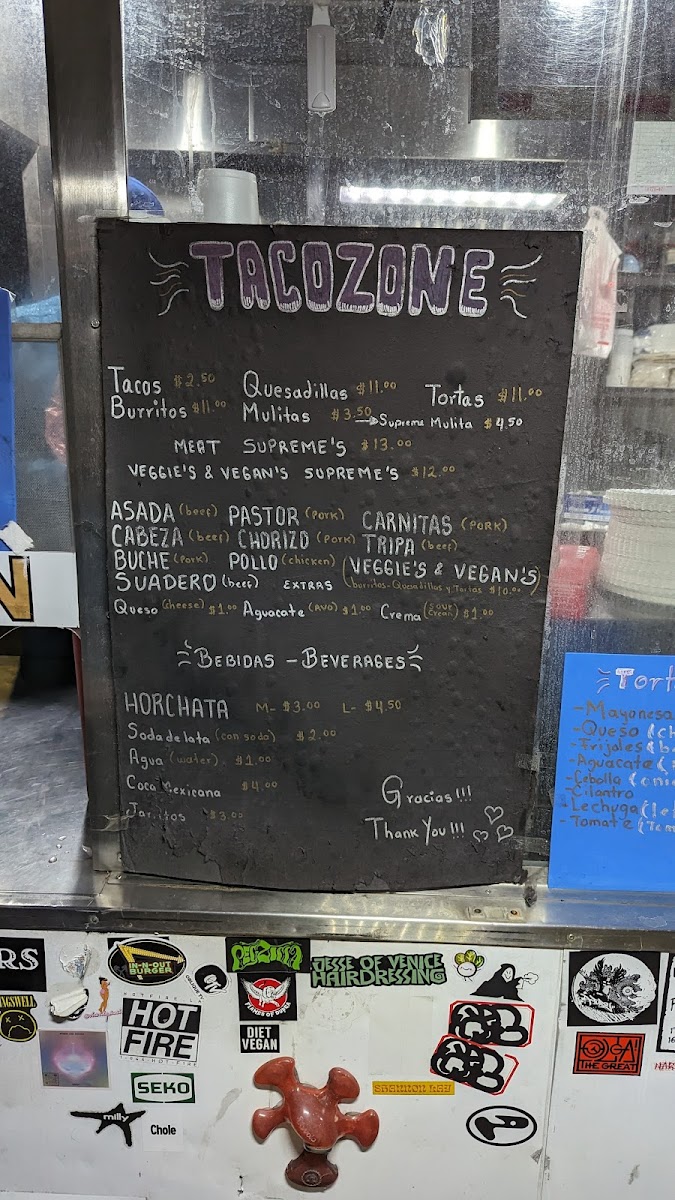 TACOZONE
Tacos $2.50 Quesadillas $11.00 Tortas $11.00
Burritos $11.00 Mulitas $3.50 Supreme Mulita $4.50
MEAT SUPREME'S $13.00
VEGGIE'S & VEGAN'S SUPREME'S $12.00
ASADA (beef) PASTOR (PORK) CARNITAS (PORK)
CABEZA (beef) CHORIZO (PORK) TRIPA (beef)
BUCHE (PORK) POLLO (chicken) (VEGGIE'S & VEGAN'S
SUADERO (beef) EXTRAS burritos-Quesadillas y Tortas $10.00)
Queso (cheese) $1.00 Aguacate (AVO) $1.00 Crema (sour cream) $1.00
BEBIDAS - BEVERAGES
HORCHATA M- $3.00 L- $4.50
Soda de lata (can soda) $2.00
Agua (water) $1.00
Coca Mexicana $4.00
Jarritos $3.00
Gracias!!!
Thank You!!!
N
Tort
-Mayonesa
-Queso (ch
-Frijoles (b
-Aguacate (
-Cebolla (oni
Cilantro
Lechuga (let
-Tomate (Tom
RS
INGSWELL
IN-N-OUT
BURGER
HOT
FIRE
SEKO
milly
Chole
DIET
VEGAN
JESSE OF VENICE
HAIRDRESSING
SHANNON LAY
THE GREAT